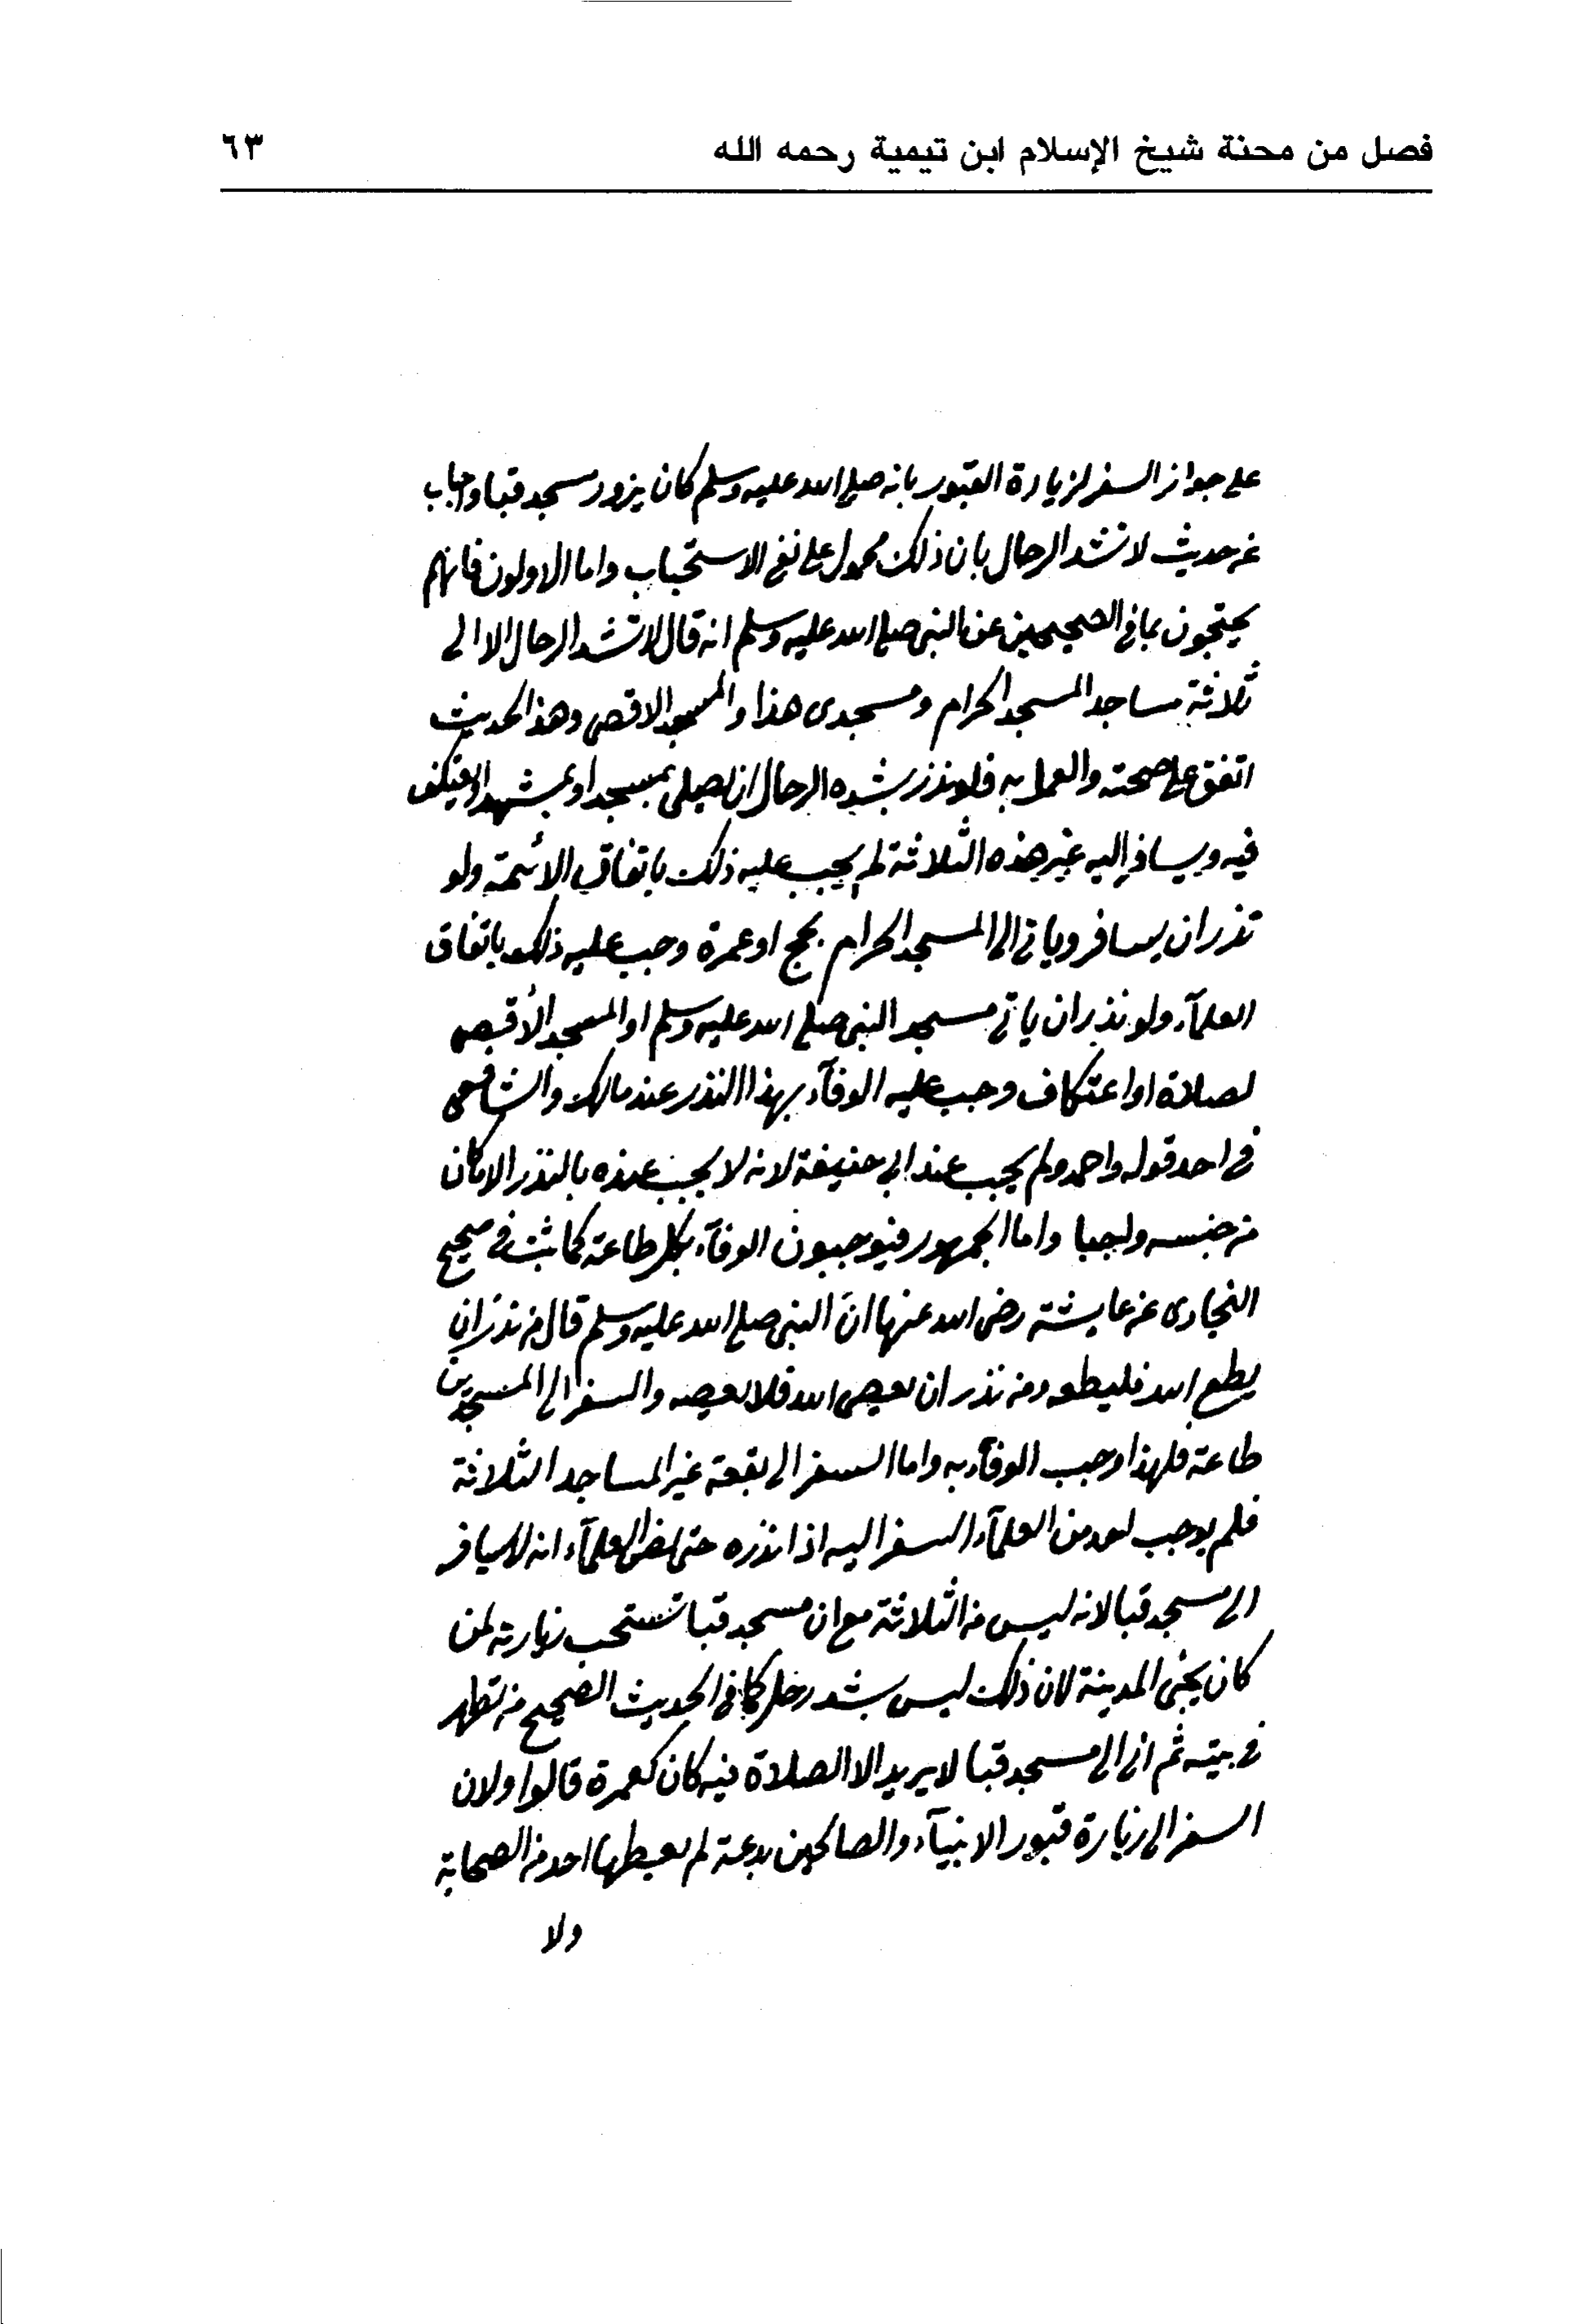 فصل من محنة شيخ الإسلام ابن تيمية رحمه الله ٦٣
على جواز السفر لزيارة القبور بانه صلى الله عليه وسلم كان يزور مسجد قبا واجاب
عن حديث لا تشد الرحال بان ذلك محمول على نفي الاستحباب واما الاولون فانهم
يحتجون بما في الصحيحين عن النبي صلى الله عليه وسلم انه قال لا تشد الرحال الا الى
ثلاثة مساجد المسجد الحرام ومسجدى هذا والمسجد الاقصى وهذا الحديث
اتفق على صحته والعمل به فلو نذر بشده الرحال ان يصلى بمسجد او بمشهد او يعتكف
فيه ويسافر اليه غير هذه الثلاثة لم يجب عليه ذلك باتفاق الائمة ولو
نذر ان يسافر وياتي الى المسجد الحرام بحج او عمرة وجب عليه ذلك باتفاق
العلمآء ولو نذر ان ياتي مسجد النبي صلى الله عليه وسلم او المسجد الأقصى
لصلاة او اعتكاف وجب عليه الوفآء بهذا النذر عند مالك والشافعى
في احد قوله واحمد ولم يجب عند ابي حنيفة لانه لا يجب عنده بالنذر الا ما كان
من جنسه واجبا واما الجمهور فيوجبون الوفآء بكل طاعة كما ثبت في صحيح
البخارى عن عايشة رضى الله عنها انَ النبي صلى الله عليه وسلم قال من نذر ان
يطع الله فليطعه ومن نذر ان يعصى الله فلا يعصه والسفر الى المسجدين
طاعة فلهذا وجب الوفآء به واما السفر الى بقعة غير المساجد الثلاثة
فلم يوجب احد من العلمآء السفر اليه اذا نذره حتى نص العلمآء انه لا يسافر
الى مسجد قبا لانه ليس من الثلاثة مع ان مسجد قبا تستحب زيارته لمن
كان بالمدينة لان ذلك ليس بشد رحل كما في الحديث الصحيح من تطهر
في بيته ثم اتى الى مسجد قبا لا يريد الا الصلاة فيه كان كعمرة قالوا ولان
السفر الى زيارة قبور الانبيآء والصالحين بدعة لم يعطها احد من الصحابة
ولا